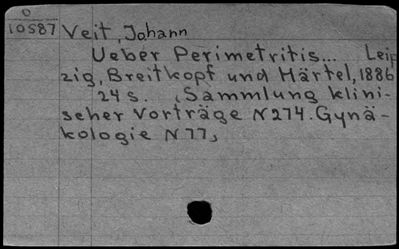 0
10587
Veit, Johann
Ueber Perimetritis... Leip
zig, Breitkopf und Härtel, 1886
24 s. (Sammlung klini-
scher Vorträge N 274. Gynä-
kologie N 77)